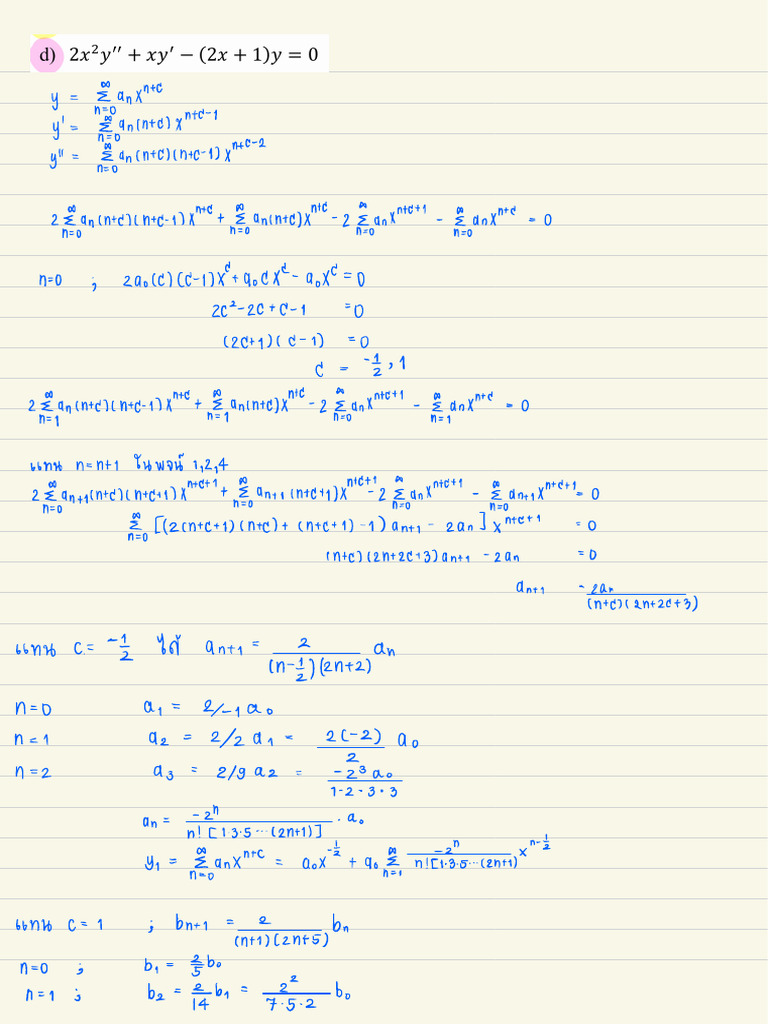 d) 2x²y′′ + xy′ − (2x + 1)y = 0
y = ∞Σn=0 aₙxⁿ⁺ᶜ
y' = ∞Σn=0 aₙ(n+c) xⁿ⁺ᶜ⁻¹
y'' = ∞Σn=0 aₙ(n+c)(n+c-1)xⁿ⁺ᶜ⁻²
2 ∞Σn=0 aₙ(n+c)(n+c-1)xⁿ⁺ᶜ + ∞Σn=0 aₙ(n+c)xⁿ⁺ᶜ - 2 ∞Σn=0 aₙxⁿ⁺ᶜ⁺¹ - ∞Σn=0 aₙxⁿ⁺ᶜ = 0
n=0 ; 2a₀(c)(c-1)xᶜ + a₀cxᶜ - a₀xᶜ = 0
2c²-2c+c-1 = 0
(2c+1)(c-1) = 0
c = -1/2, 1
2 ∞Σn=1 aₙ(n+c)(n+c-1)xⁿ⁺ᶜ + ∞Σn=1 aₙ(n+c)xⁿ⁺ᶜ - 2 ∞Σn=0 aₙxⁿ⁺ᶜ⁺¹ - ∞Σn=1 aₙxⁿ⁺ᶜ = 0
แทน n=n+1 ในพจน์ 1,2,4
2 ∞Σn=0 aₙ₊₁(n+c)(n+c+1)xⁿ⁺ᶜ⁺¹ + ∞Σn=0 aₙ₊₁(n+c+1)xⁿ⁺ᶜ⁺¹ - 2 ∞Σn=0 aₙxⁿ⁺ᶜ⁺¹ - ∞Σn=0 aₙ₊₁xⁿ⁺ᶜ⁺¹ = 0
∞Σn=0 [(2(n+c+1)(n+c) + (n+c+1)-1)aₙ₊₁ - 2aₙ] xⁿ⁺ᶜ⁺¹ = 0
(n+c)(2n+2c+3)aₙ₊₁ - 2aₙ = 0
aₙ₊₁ = 2aₙ/(n+c)(2n+2c+3)
แทน c = -1/2 ได้ aₙ₊₁ = 2/(n-1/2)(2n+2) aₙ
n=0 a₁ = 2/-1 a₀
n=1 a₂ = 2/2 a₁ = 2(-2)/2 a₀
n=2 a₃ = 2/9 a₂ = -2³a₀/1·2·3·3
aₙ = -2ⁿ/n![1·3·5···(2n+1)] · a₀
y₁ = ∞Σn=0 aₙxⁿ⁺ᶜ = a₀x^(-1/2) + a₀ ∞Σn=1 -2ⁿ/n![1·3·5···(2n+1)] x^(n-1/2)
แทน c = 1 ; bₙ₊₁ = 2/(n+1)(2n+5) bₙ
n=0 ; b₁ = 2/5 b₀
n=1 ; b₂ = 2/14 b₁ = 2²/7·5·2 b₀